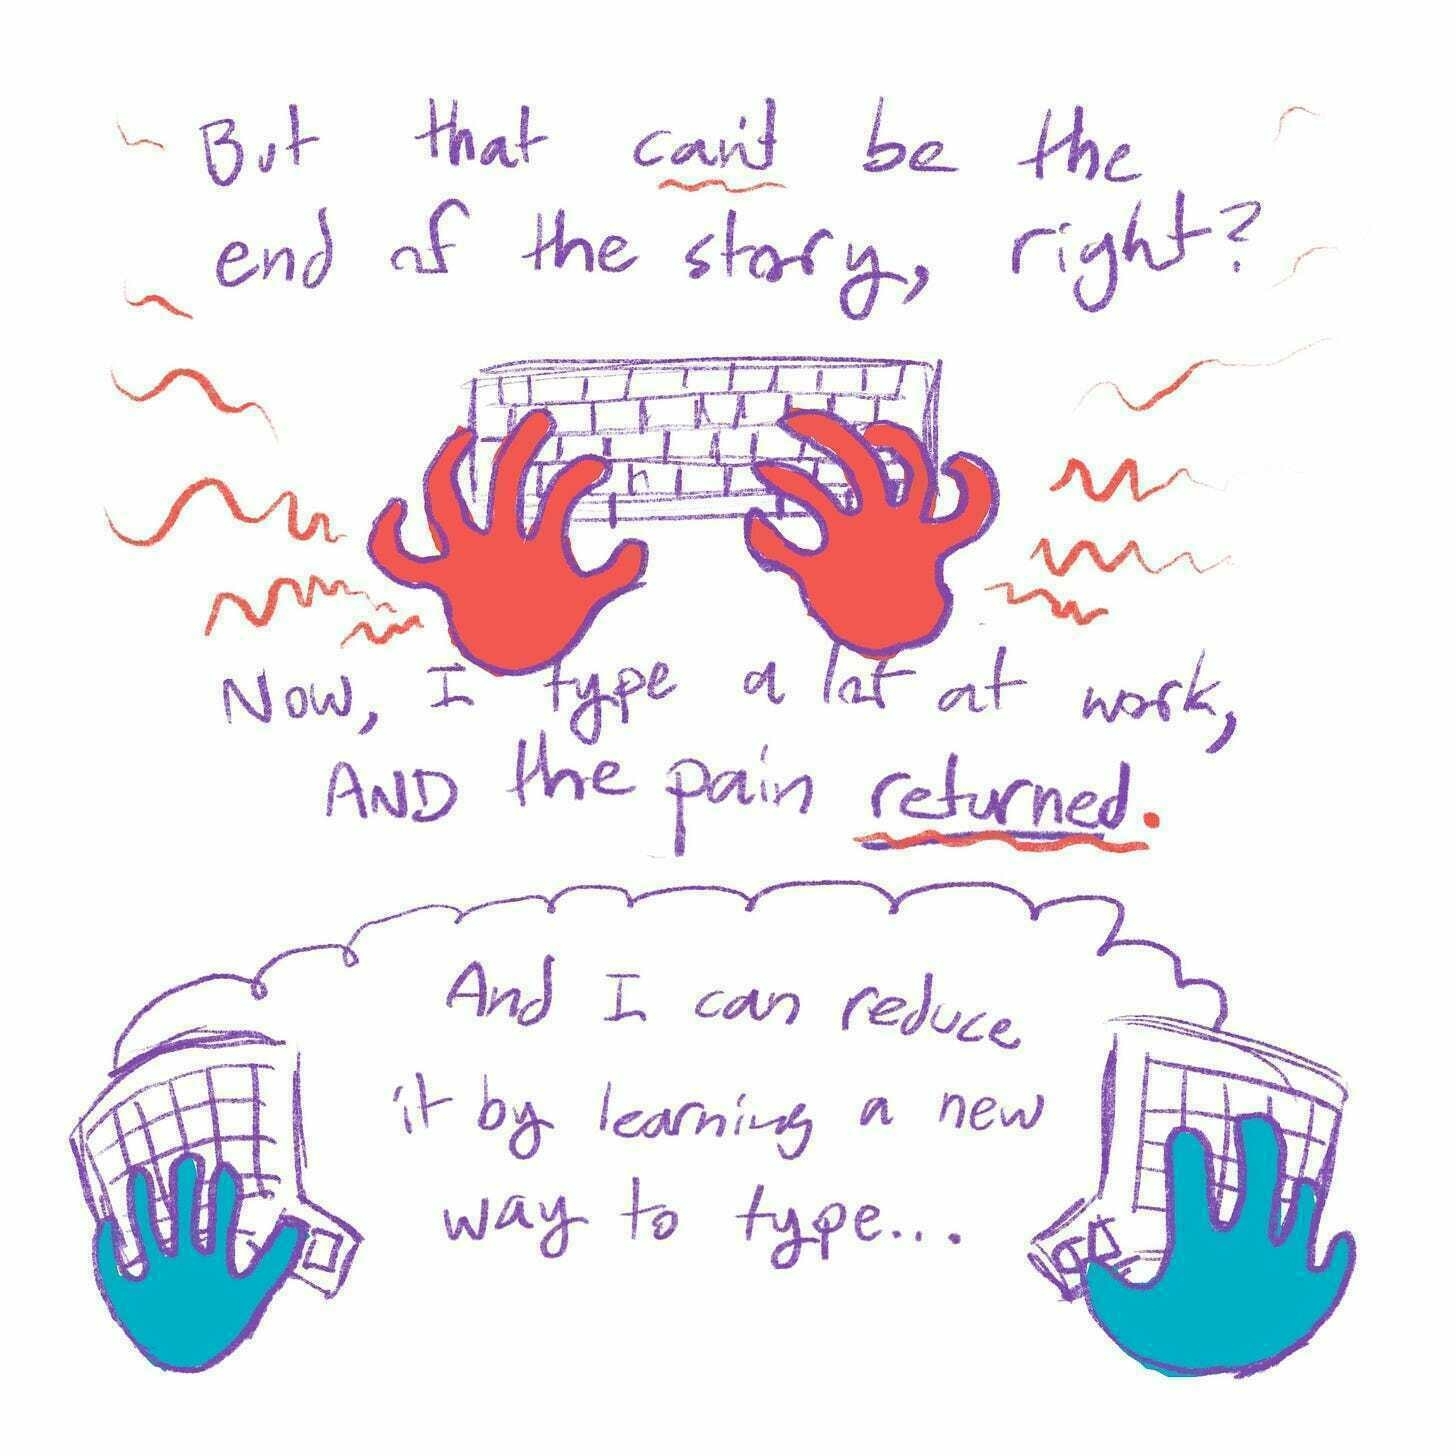 But that can't be the
end of the story, right?
Now, I type a lot at work,
AND the pain returned.
And I can reduce
it by learning a new
way to type...